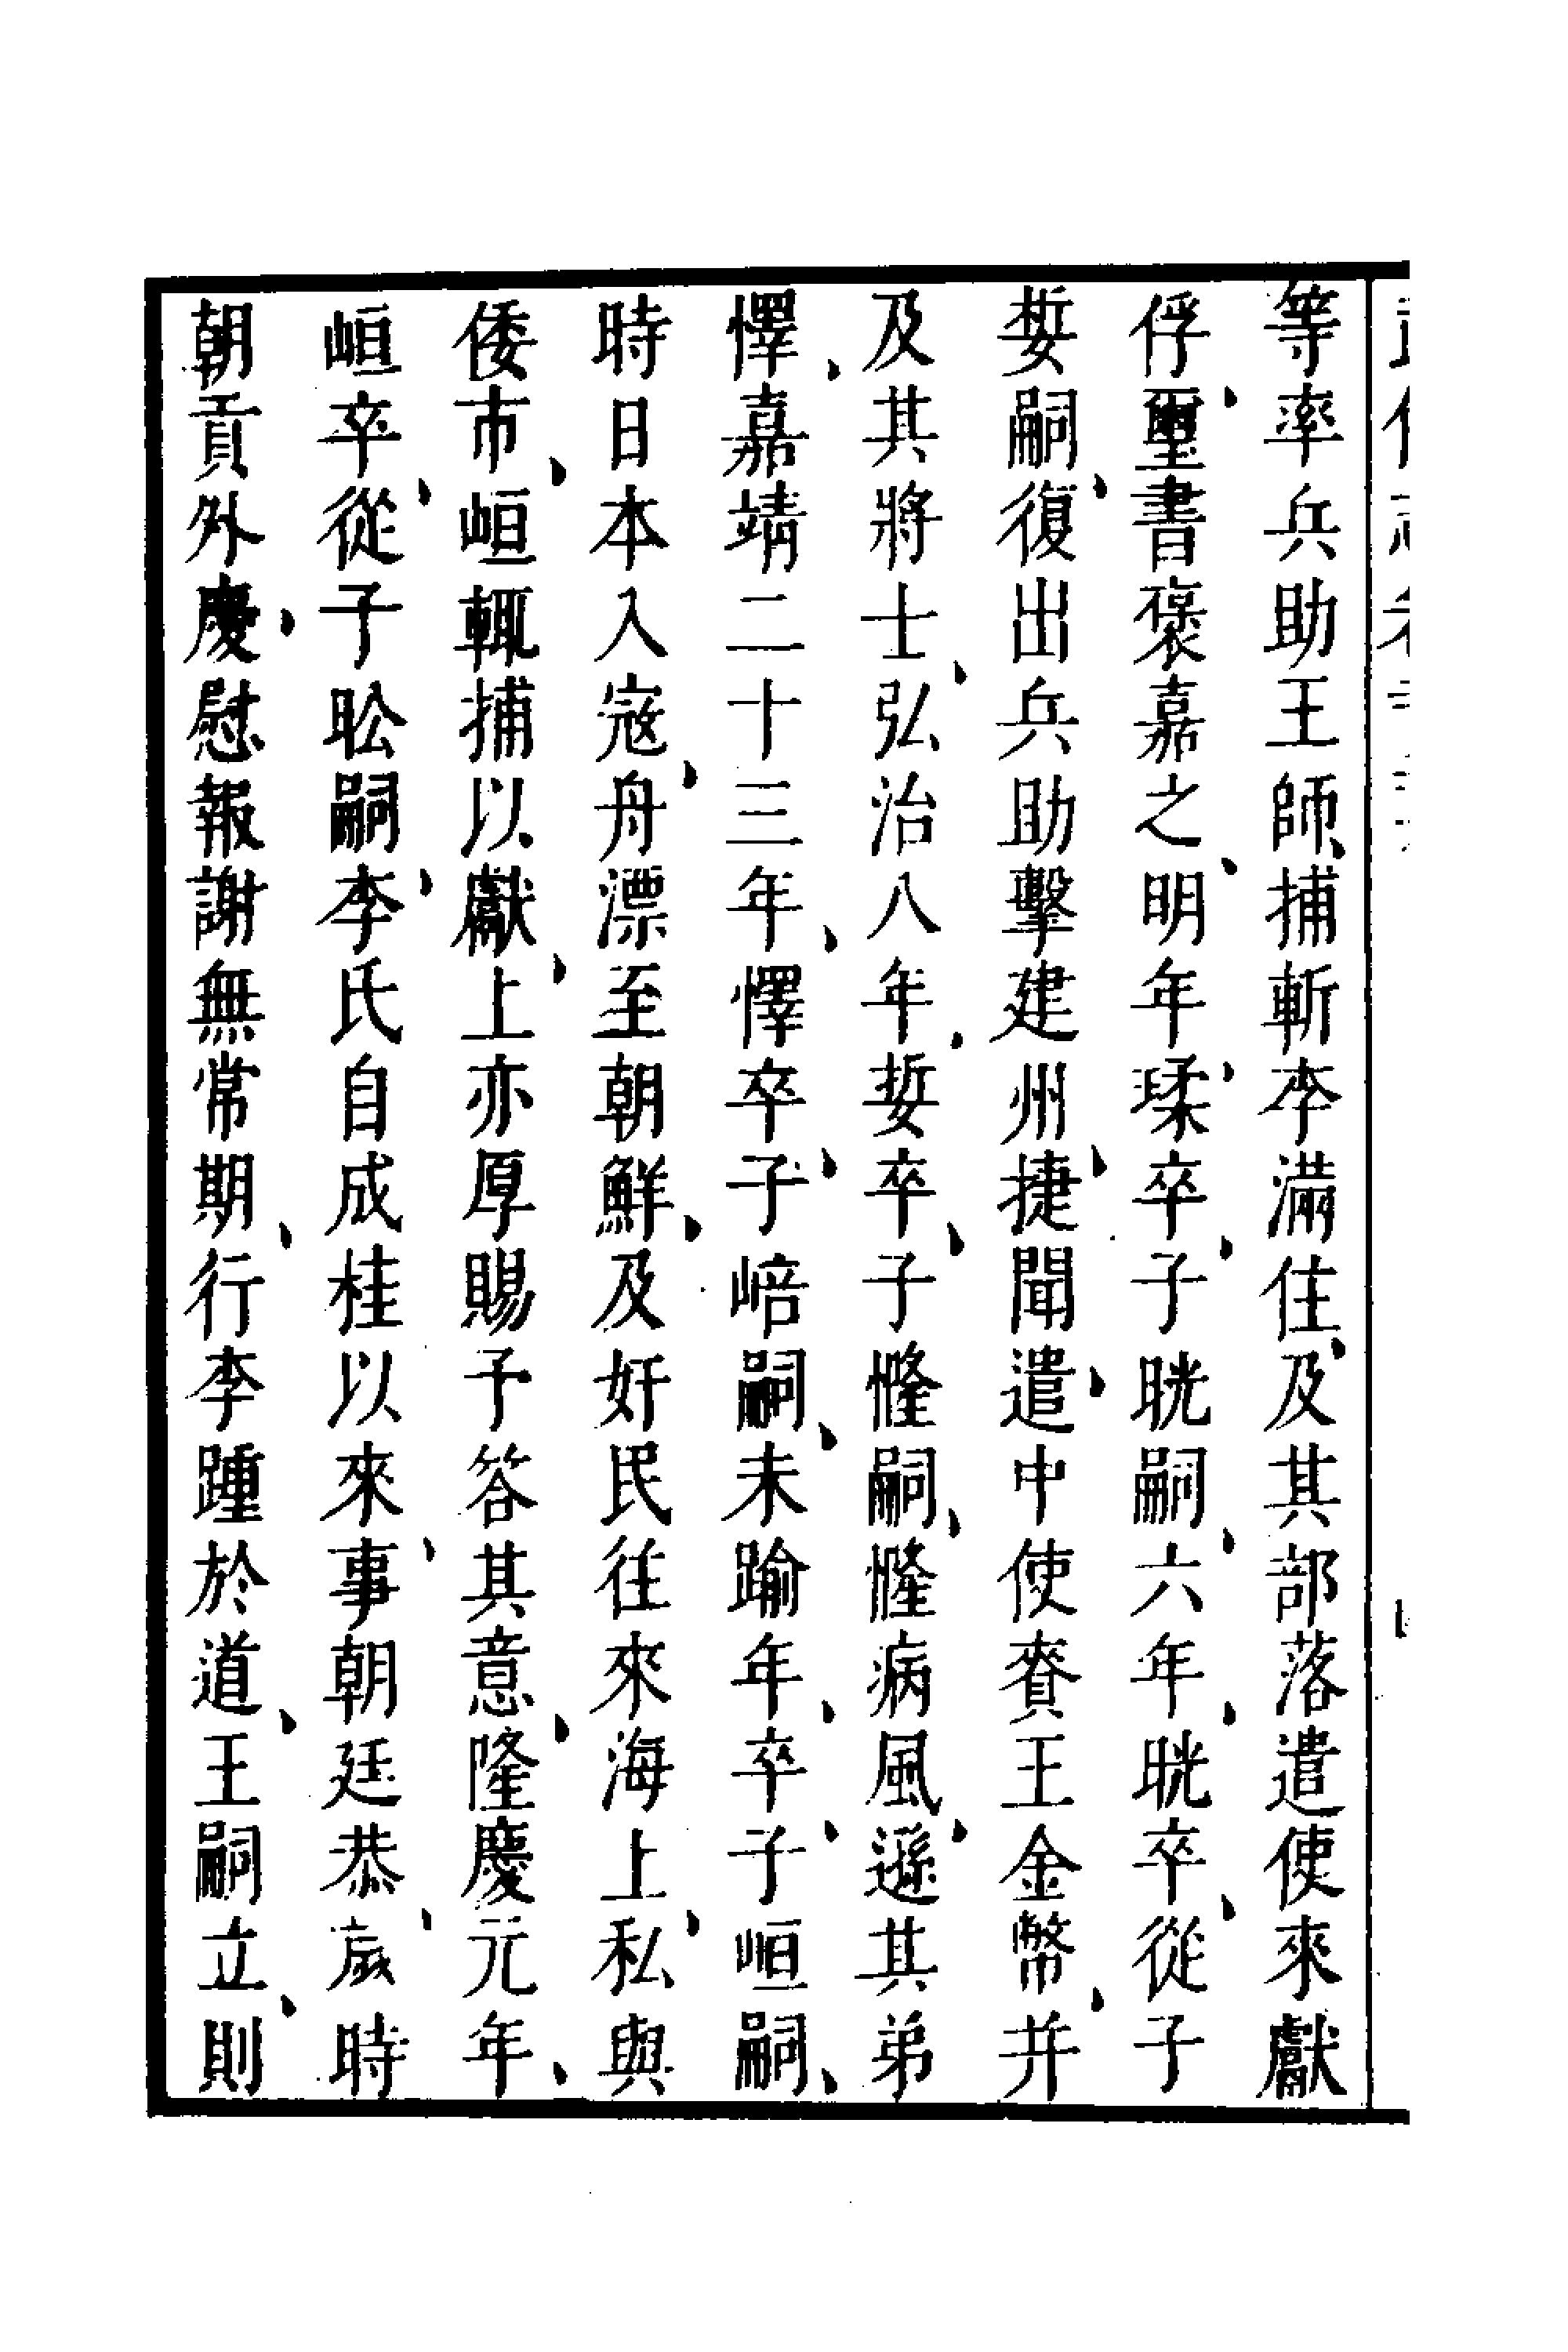 等率兵助王師、捕斬李滿住、及其部落遣使來獻
俘、璽書褒嘉之、明年、瑈卒、子晄嗣、六年、晄卒、從子
娎嗣、復出兵助擊建州、捷聞、遣中使賫王金幣、并
及其將士、弘治八年、娎卒、子㦕嗣、㦕病風、遜其弟
懌、嘉靖二十三年、懌卒、子峼嗣、未踰年、卒、子峘嗣、
時日本入寇、舟漂至朝鮮、及奸民往來海上、私與
倭市、峘輒捕以獻、上亦厚賜予答其意、隆慶元年、
峘卒、從子昖嗣、李氏自成桂以來、事朝廷恭、歲時
朝貢外、慶慰報謝無常期、行李踵於道、王嗣立、則